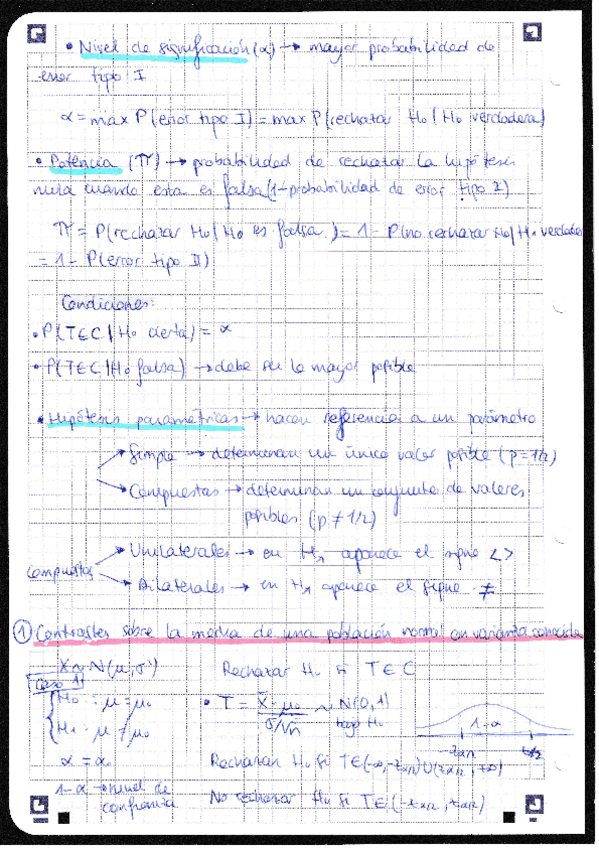 • Nivel de significación (α) → mayor probabilidad de
error tipo I
α = max P(error tipo I) = max P(rechazar H₀ / H₀ verdadera)
• Potencia (π) → probabilidad de rechazar la hipótesis
nula cuando esta es falsa (1-probabilidad de error tipo I)
π = P(rechazar H₀ / H₀ es falsa) = 1 - P(no rechazar H₀ / H₀ verdadera
= 1 - P(error tipo II)
Condiciones:
• P(T∈C | H₀ cierta) = α
• P(T∈C | H₀ falsa) → debe ser lo mayor posible
• Hipótesis paramétricas → hacen referencia a un parámetro
→ Simple → determinan un único valor posible (p=1/2)
→ Compuestas → determinan un conjunto de valores
posibles (p ≠ 1/2)
Compuestas → Unilaterales → en H₁ aparece el signo < >
→ Bilaterales → en H₁ aparece el signo ≠
① Contrastes sobre la media de una población normal con varianza conocida
X ~ N(μ, σ) Rechazar H₀ si T∈C
Caso 1
H₀ : μ = μ₀ • T = (X̄ - μ₀) / (σ/√n) ~ N(0,1)
bajo H₀
H₁ : μ ≠ μ₀
1-α
-zα/2 zα/2
α = α₀ Rechazar H₀ si T∈(-∞, -zα/2) U (zα/2, +∞)
1-α → nivel de
confianza
No rechazar H₀ si T∈(-zα/2, zα/2)